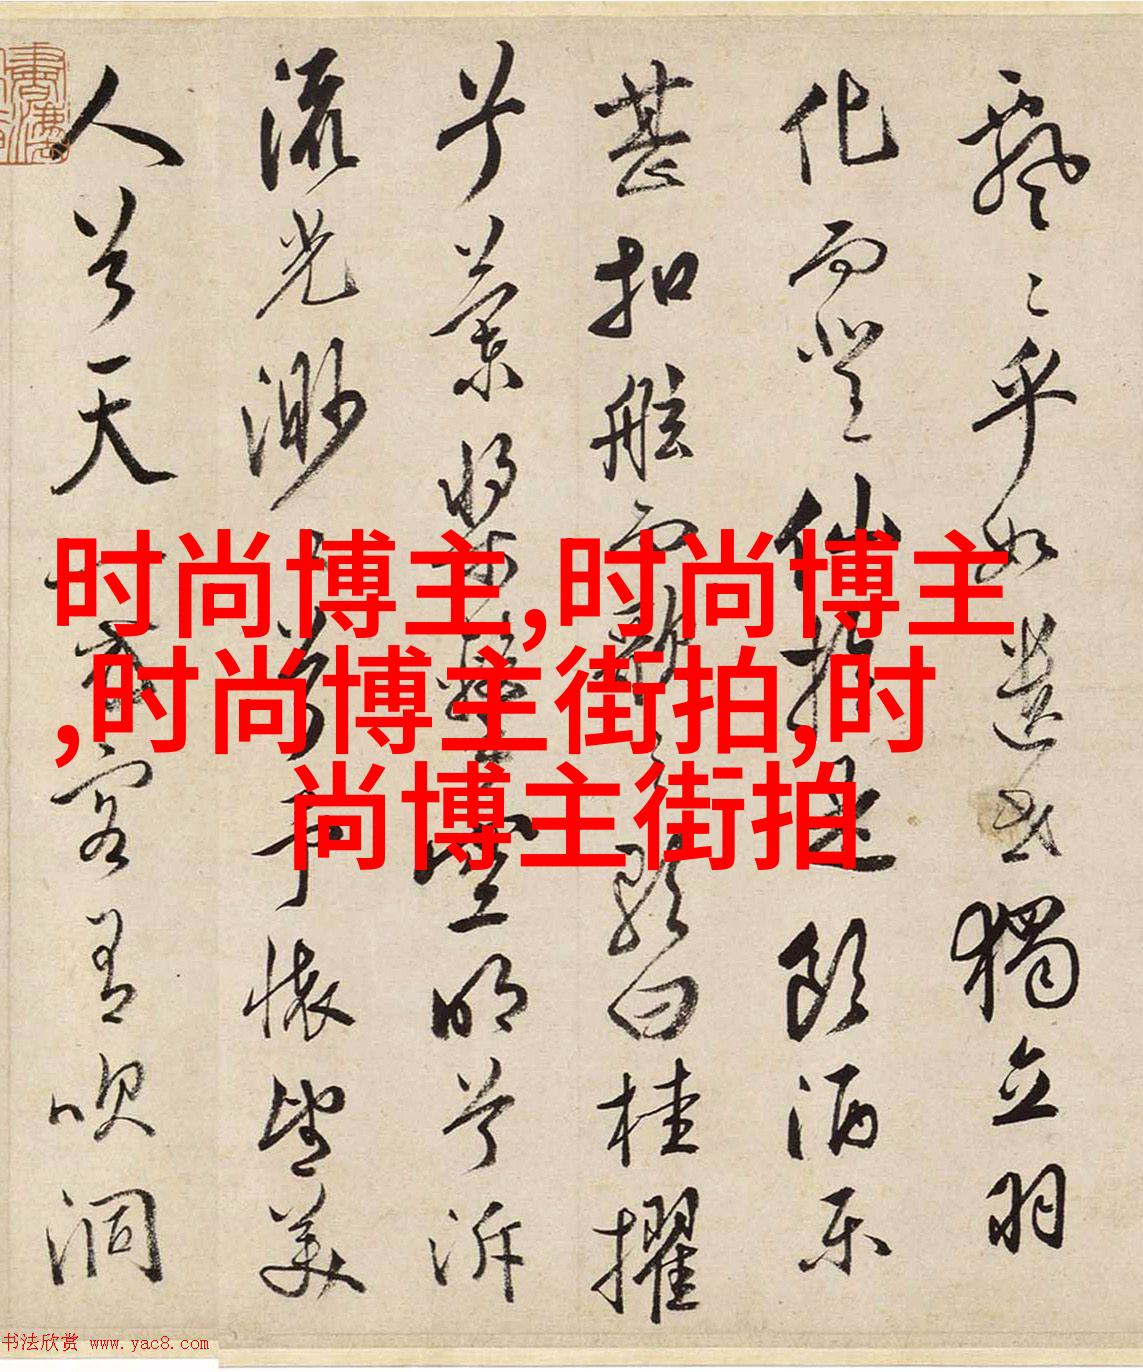 飄〻乎如遺世獨立羽
化而登仙於是飲酒樂
甚扣舷而歌之歌曰桂櫂
兮蘭槳擊空明兮泝
流光渺〻兮予懷望美
人兮天一方客有吹洞
时尚博主,时尚博主
,时尚博主街拍,时
尚博主街拍
书法欣赏 www.yac8.com